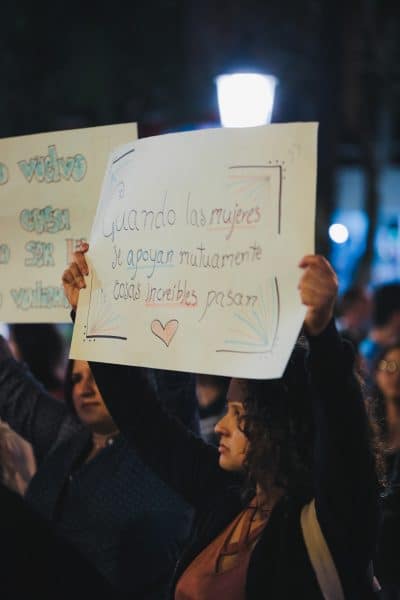 vuelvo
CASA
SER
Cuando las mujeres
se apoyan mutuamente
cosas increibles pasan